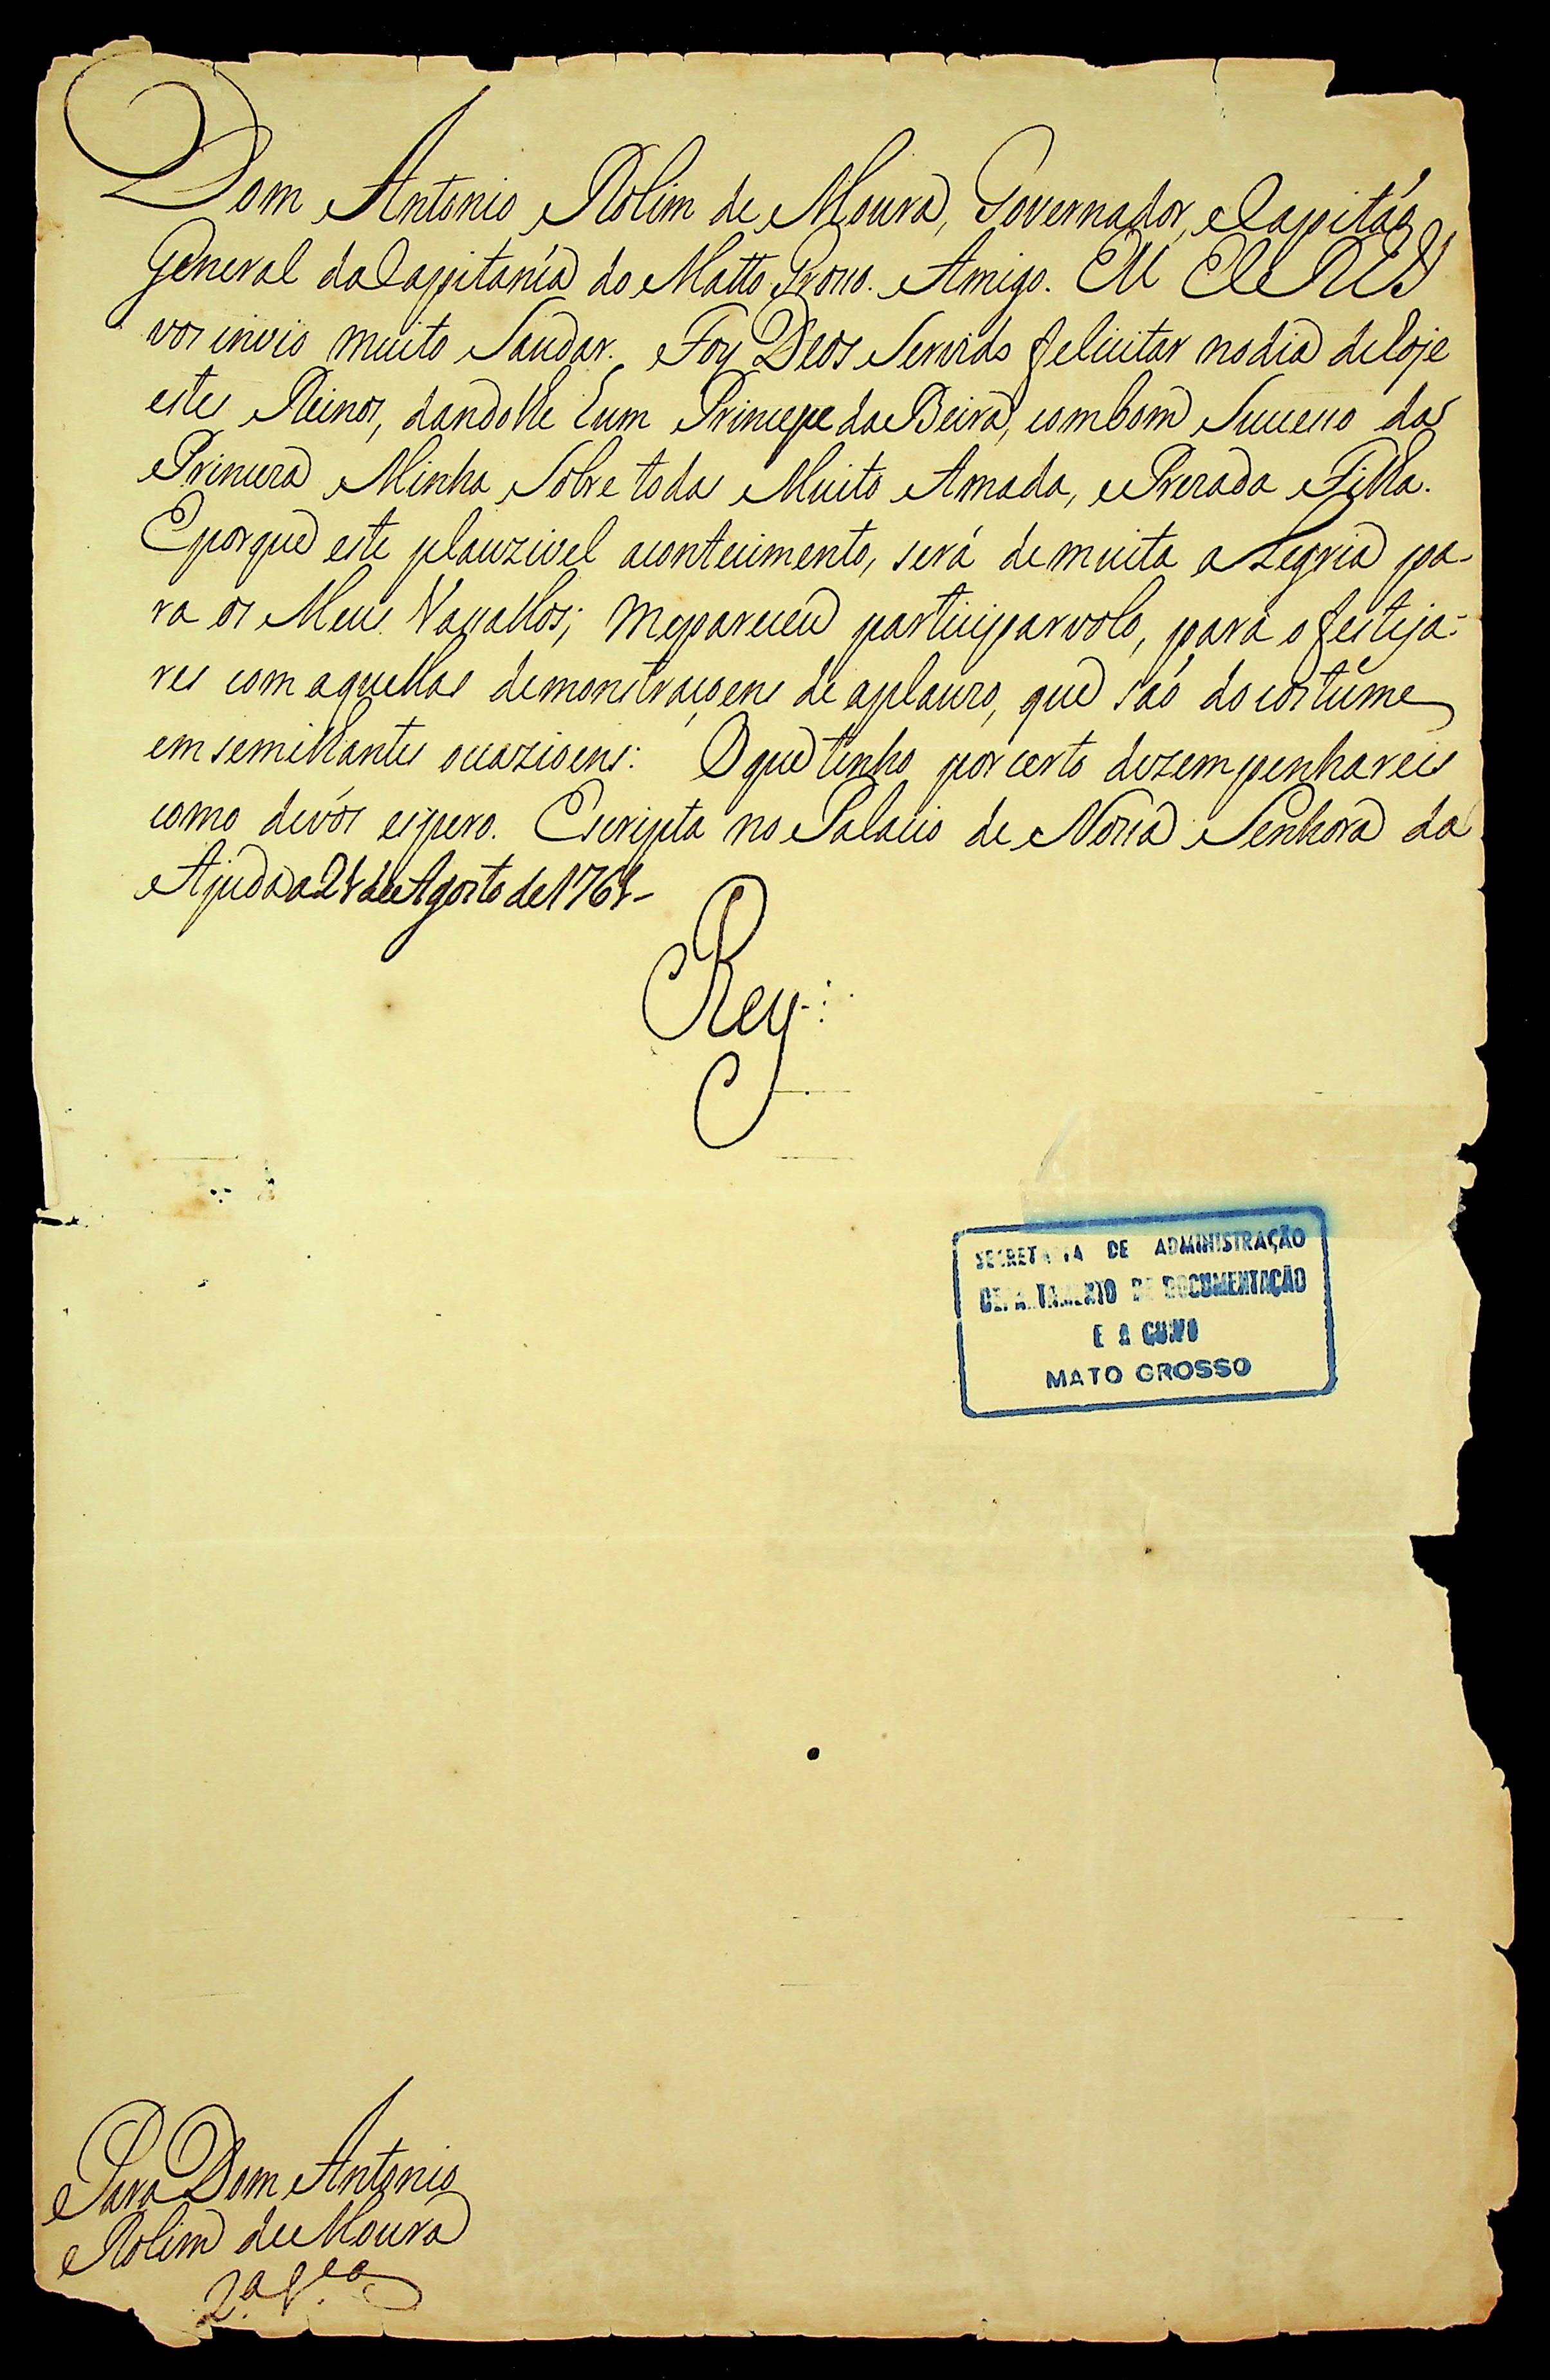 Dom Antonio Rolim de Moura, Governador, e Capitaõ
General da Capitanía do Matto Grosso. Amigo. EU ELREY
vos invio muito Saudar. Foy Deos Servido felicitar no dia de hoje
estes Reinos, dandolhe hum Princepe da Beira, com bom Sucesso da
Princeza Minha Sobre todas Muito Amada, e Prezada Filha.
E porque este plauzivel acontecimento, será de muita alegria pa-
ra os Meus Vassallos; me pareceu participarvolo, para o festeja-
res com aquellas demonstraçoens de aplauzo, que saõ do costûme
em semilhantes occazioens: O que tenho por certo dezempenhareis
como de vós espero. Escripta no Palacio de Nossa Senhora da
Ajuda a 21 de Agosto de 1761-
Rey
SECRETARIA DE ADMINISTRAÇÃO
DEPARTAMENTO DE DOCUMENTAÇÃO
E ARQUIVO
MATO GROSSO
Para Dom Antonio
Rolim de Moura
2.ª V.ea